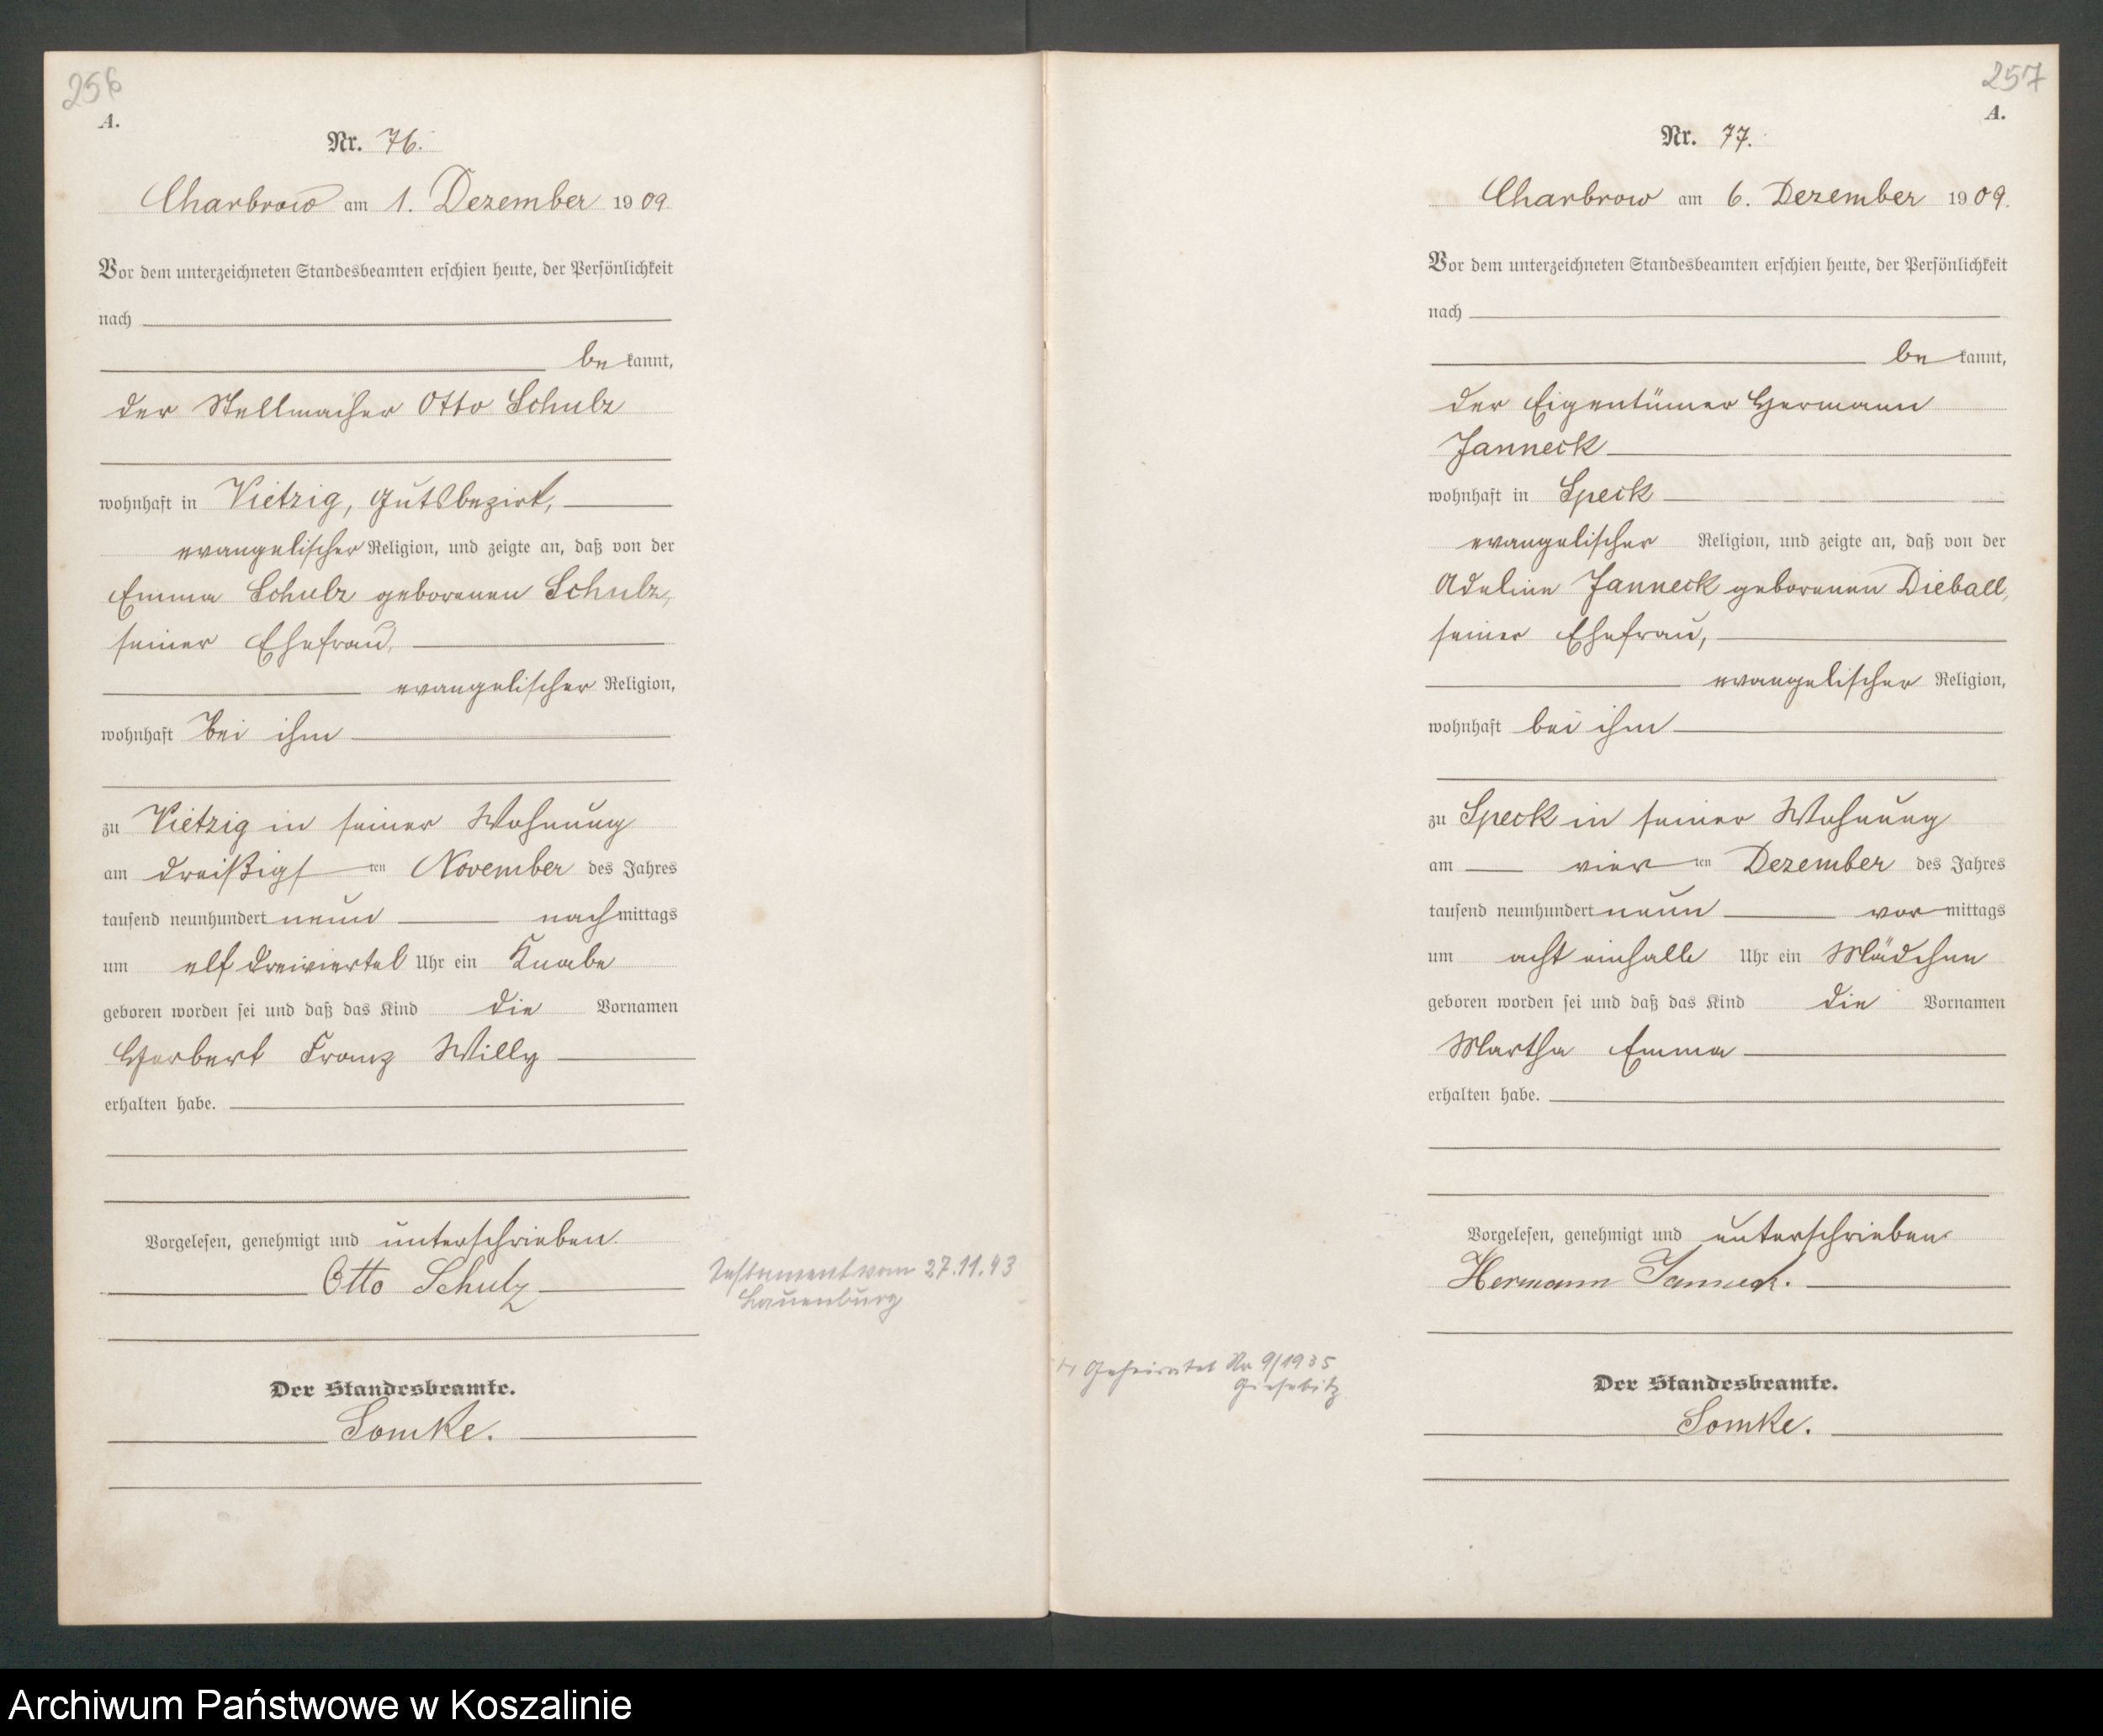 256
A.
Nr. 76.
Charbrow am 1. Dezember 1909
Vor dem unterzeichneten Standesbeamten erschien heute, der Persönlichkeit
nach
be kannt,
der Stellmacher Otto Schulz
wohnhaft in Vietzig, Gutsbezirk,
evangelischer Religion, und zeigte an, daß von der
Emma Schulz geborenen Schulz,
seiner Ehefrau,
evangelischer Religion,
wohnhaft bei ihm
zu Vietzig in seiner Wohnung
am dreißigsten November des Jahres
tausend neunhundert neun nachmittags
um elf dreiviertel Uhr ein Knabe
geboren worden sei und daß das Kind die Vornamen
Herbert Franz Willy
erhalten habe.
Vorgelesen, genehmigt und unterschrieben.
Otto Schulz
Testament vom 27.11.43
Lauenburg
Der Standesbeamte.
Somke.
257
A.
Nr. 77.
Charbrow am 6. Dezember 1909.
Vor dem unterzeichneten Standesbeamten erschien heute, der Persönlichkeit
nach
be kannt,
der Eigentümer Hermann
Janneck
wohnhaft in Speck
evangelischer Religion, und zeigte an, daß von der
Adeline Janneck geborenen Dieball,
seiner Ehefrau,
evangelischer Religion,
wohnhaft bei ihm
zu Speck in seiner Wohnung
am vierten Dezember des Jahres
tausend neunhundert neun vormittags
um acht einhalb Uhr ein Mädchen
geboren worden sei und daß das Kind die Vornamen
Martha Emma
erhalten habe.
Vorgelesen, genehmigt und unterschrieben
Hermann Janneck.
Geheiratet Nr 9/1935
Giesebitz
Der Standesbeamte.
Somke.
Archiwum Państwowe w Koszalinie